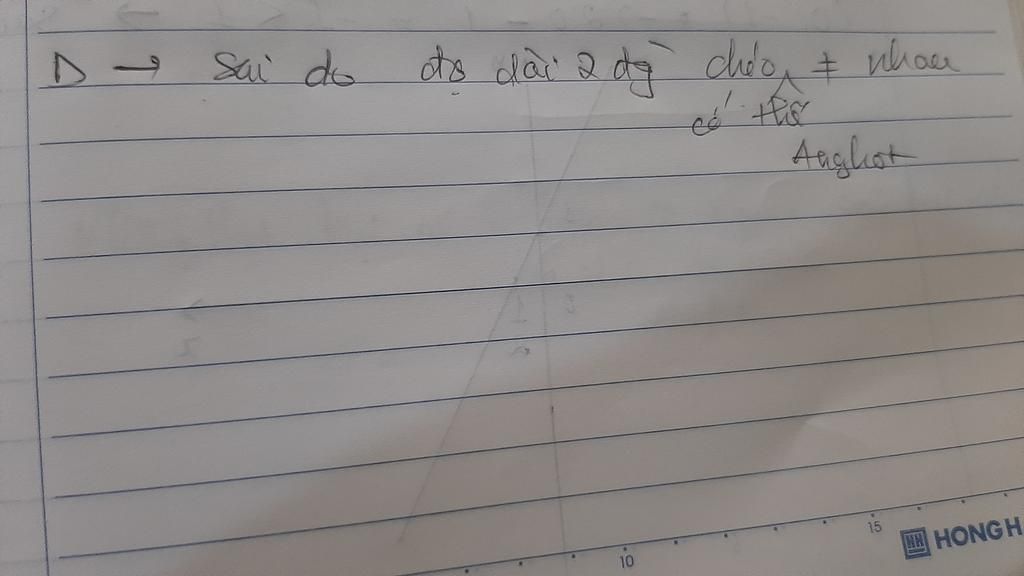 D → Sai do độ dài 2 đg chéo ≠ nhau
có thể
Anghot
10
15
HONG H